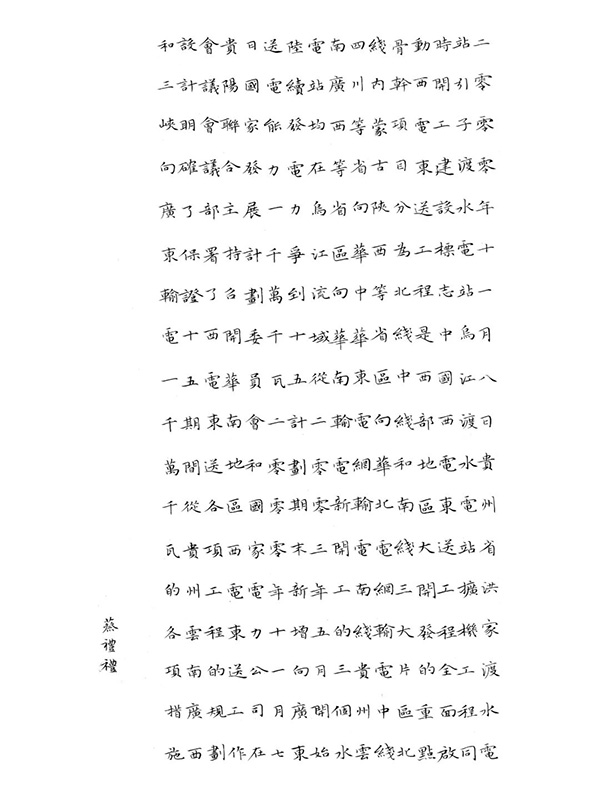 二零零零年十一月八日貴州省洪家渡水電
站引子渡水電站烏江渡水電站擴機工程同
時開工建設標志中國西電東送工程全面啟
動西電東送工程是西部地區大開發的重點
骨幹項目分為北綫中綫和南綫三大片區北
綫內蒙古陝西等省區向華北電網輸電中綫
四川等省向華中華東電網輸電南綫貴州雲
南廣西等省區向華南輸電新開工的三個水
電站均在烏江流域從二零零三年五月開始
陸續發電力爭到十五計劃期末新增向廣東
送電能力一千萬千瓦二零零零年十一月七
日國家發展計劃委員會和國家電力公司在
貴陽聯合主持召開華南地區西電東送工作
會議會議部署了西電東送各項工程的規劃
設計明確了保證十五期間從貴州雲南廣西
和三峽向廣東輸電一千萬千瓦的各項措施
蔡禮禮